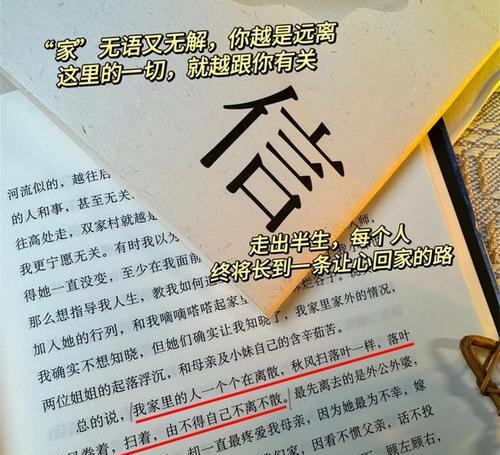 “家”无语又无解，你越是远离
这里的一切，就越跟你有关
信
走出半生，每个人
终将长到一条让心回家的路
河流似的，越往后
的人和事，甚至无关
往高处走，双家村就越是
我更宁愿无关。有时我以为
得她一直没变，至少在我面前
那么想指导我人生，教我如何
加入她的行列，和我嘀嘀嗒嗒起家里
我确实不想知晓，但她们确实让我知晓了，我家里家外的情况，
两位姐姐的起落浮沉，和母亲及小妹自己的含辛茹苦。
总的说，我家里的人一个个在离散，秋风扫落叶一样，落叶
卷着，扫着，由不得自己不离不散。最先离去的是外公外婆，
却一直最疼爱我母亲，因为她最为不幸，嫁
家，看不惯父亲，话不投
顾左顾右，